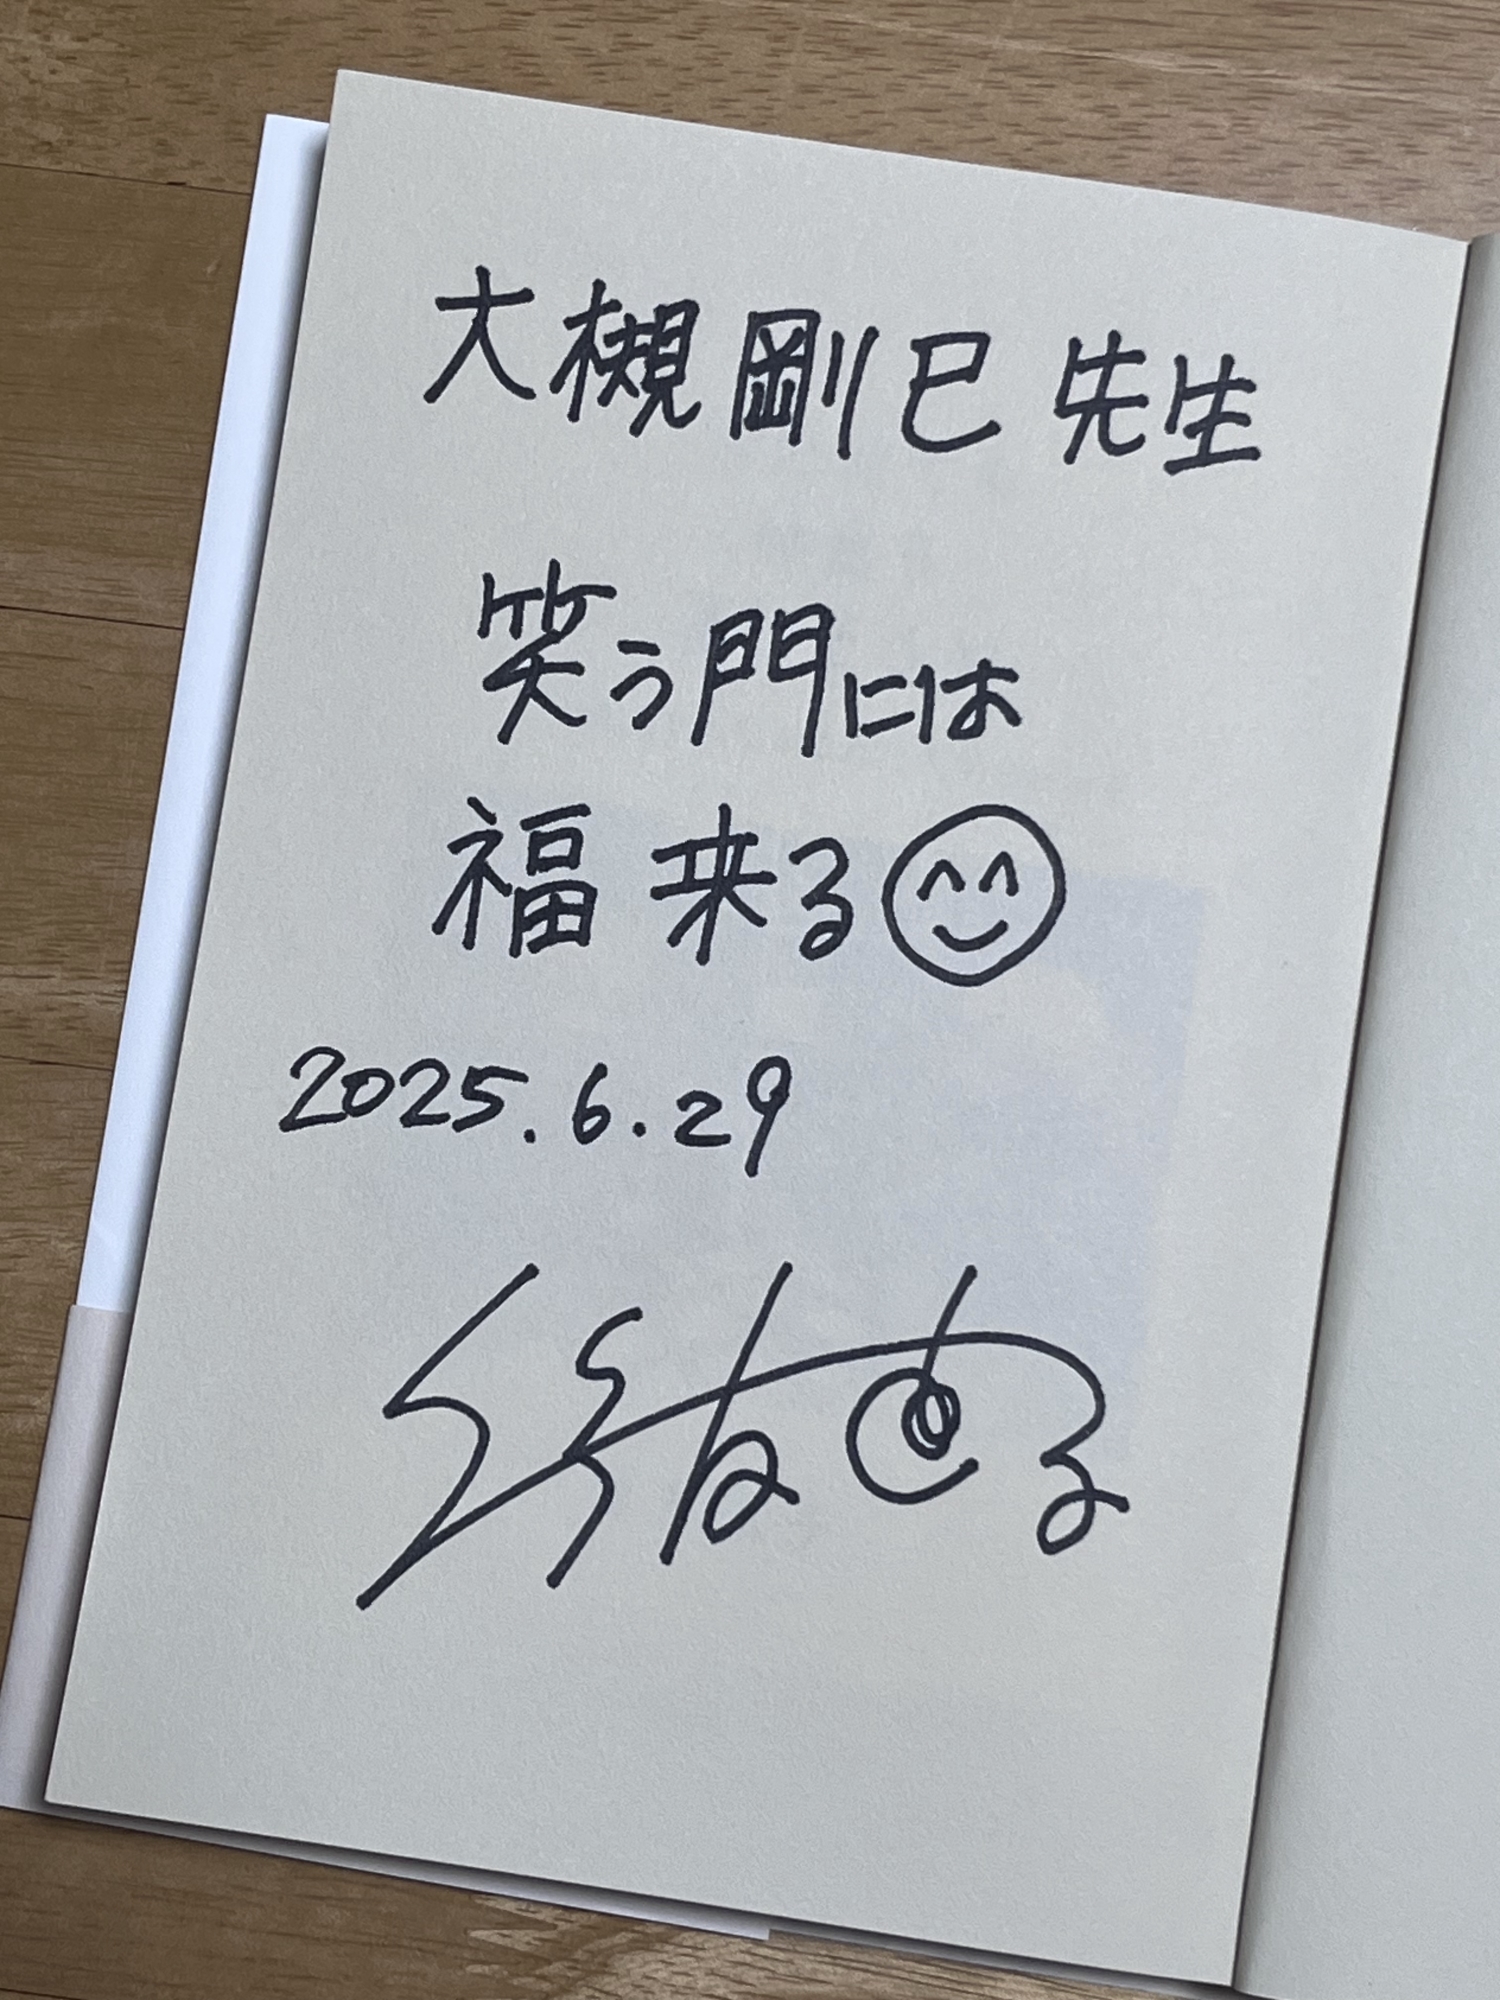 大槻剛巳先生
笑う門には
福来る
2025.6.29